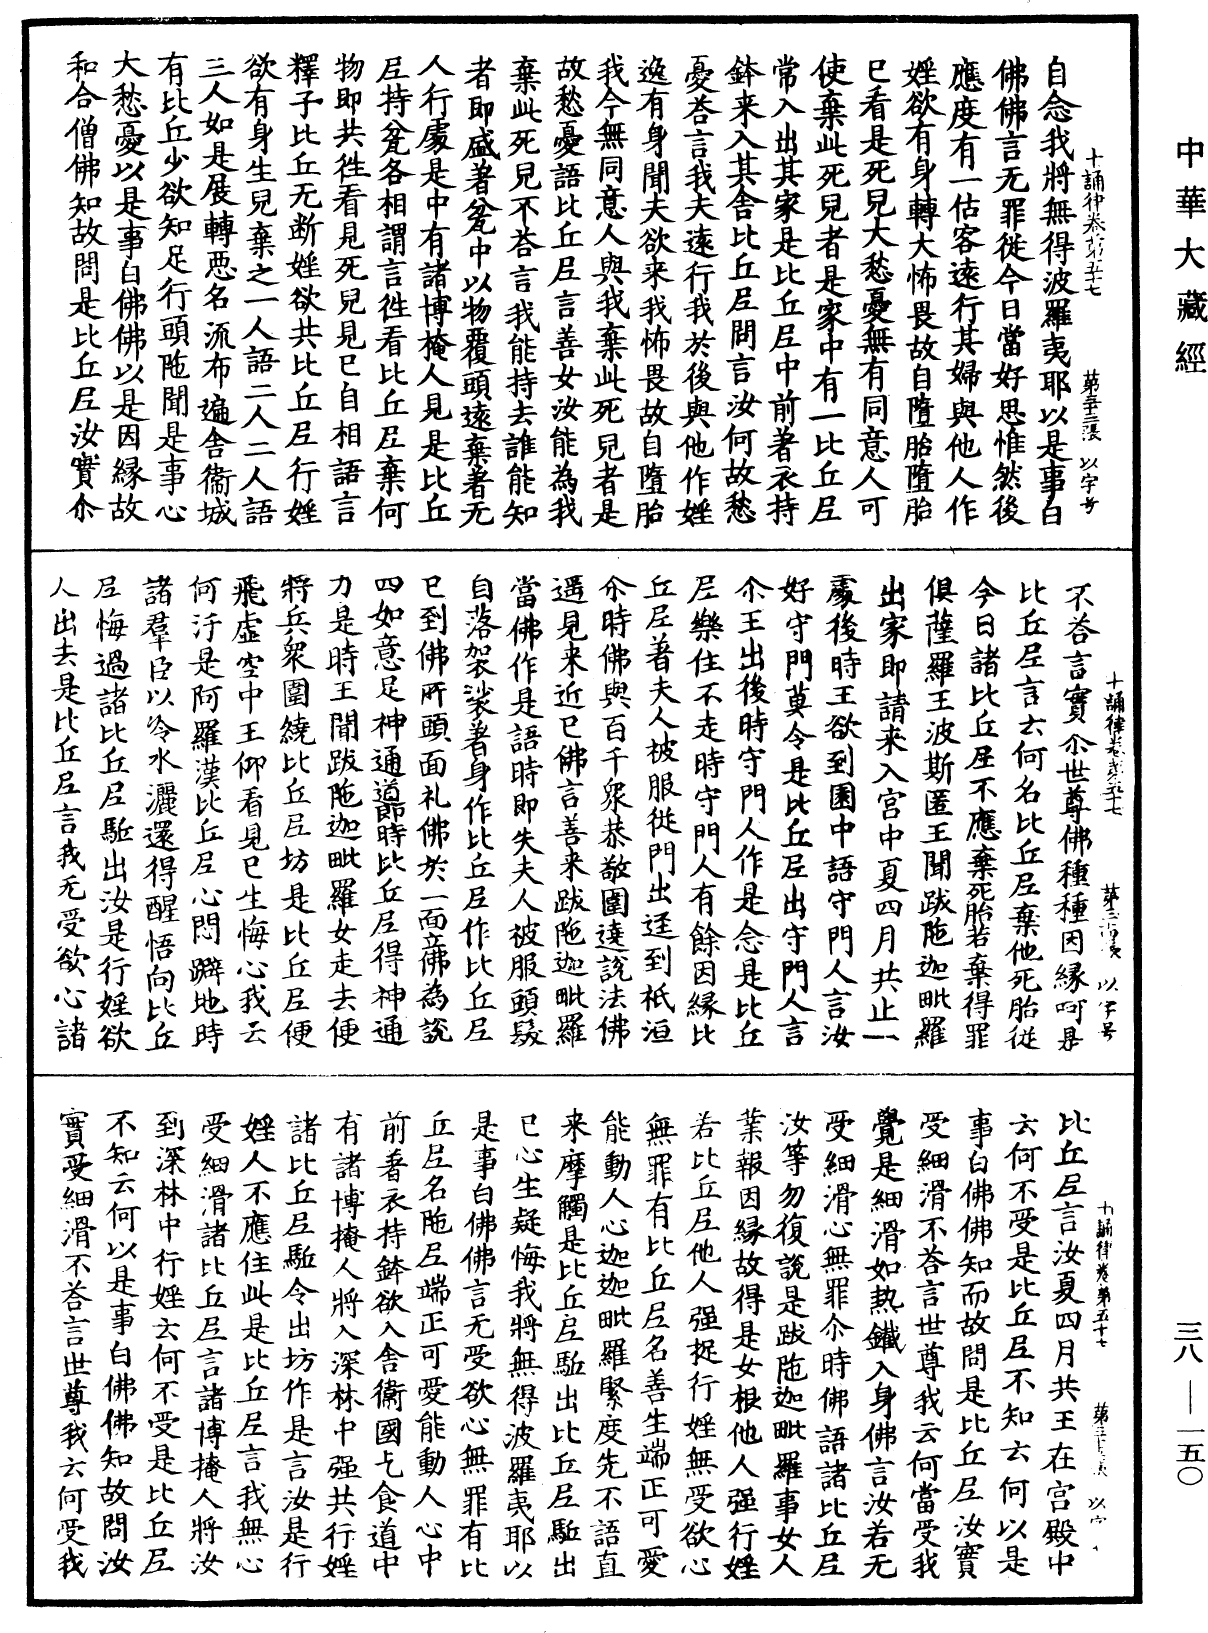 中華大藏經
三八—一五〇
十誦律卷第五十七　第三十三張　以字号
自念我將無得波羅夷耶以是事白
佛佛言无罪從今日當好思惟然後
應度有一估客遠行其婦與他人作
婬欲有身轉大怖畏故自墮胎墮胎
已看是死兒大愁憂無有同意人可
使棄此死兒者是家中有一比丘尼
常入出其家是比丘尼中前著衣持
鉢来入其舍比丘尼問言汝何故愁
憂荅言我夫遠行我於後與他作婬
逸有身聞夫欲来我怖畏故自墮胎
我今無同意人與我棄此死兒者是
故愁憂語比丘尼言善女汝能為我
棄此死兒不荅言我能持去誰能知
者即盛著瓮中以物覆頭遠棄著无
人行處是中有諸博掩人見是比丘
尼持瓮各相謂言徃看比丘尼棄何
物即共徃看見死兒見已自相語言
釋子比丘无断婬欲共比丘尼行婬
欲有身生兒棄之一人語二人二人語
三人如是展轉惡名流布遍舍衛城
有比丘少欲知足行頭陁聞是事心
大愁憂以是事白佛佛以是因緣故
和合僧佛知故問是比丘尼汝實尒
十誦律卷第五十七　第三十四張　以字号
不荅言實尒世尊佛種種因緣呵是
比丘尼言云何名比丘尼棄他死胎從
今日諸比丘尼不應棄死胎若棄得罪
俱薩羅王波斯匿王聞跋陁迦毗羅
出家即請来入宮中夏四月共止一
處後時王欲到園中語守門人言汝
好守門莫令是比丘尼出守門人言
尒王出後時守門人作是念是比丘
尼樂住不走時守門人有餘因緣比
丘尼著夫人被服從門出逕到祇洹
尒時佛與百千衆恭敬圍遶說法佛
遥見来近已佛言善来跋陁迦毗羅
當佛作是語時即失夫人被服頭髮
自落袈裟著身作比丘尼作比丘尼
已到佛所頭面礼佛於一面立佛為說
四如意足神通道即時比丘尼得神通
力是時王聞跋陁迦毗羅女走去便
將兵衆圍繞比丘尼坊是比丘尼便
飛虛空中王仰看見已生悔心我云
何汙是阿羅漢比丘尼心悶躃地時
諸羣臣以冷水灑還得醒悟向比丘
尼悔過諸比丘尼駈出汝是行婬欲
人出去是比丘尼言我无受欲心諸
十誦律卷第五十七　第三十五張　以字
比丘尼言汝夏四月共王在宮殿中
云何不受是比丘尼不知云何以是
事白佛佛知而故問是比丘尼汝實
受細滑不荅言世尊我云何當受我
覺是細滑如熱鐵入身佛言汝若无
受細滑心無罪尒時佛語諸比丘尼
汝等勿復說是跋陁迦毗羅事女人
業報因緣故得是女根他人强行婬
若比丘尼他人强捉行婬無受欲心
無罪有比丘尼名善生端正可愛
能動人心迦迦毗羅緊度先不語直
来摩觸是比丘尼駈出比丘尼駈出
已心生疑悔我將無得波羅夷耶以
是事白佛佛言无受欲心無罪有比
丘尼名陁尼端正可愛能動人心中
前著衣持鉢欲入舍衛國乞食道中
有諸博掩人將入深林中强共行婬
諸比丘尼駈令出坊作是言汝是行
婬人不應住此是比丘尼言我無心
受細滑諸比丘尼言諸博掩人將汝
到深林中行婬云何不受是比丘尼
不知云何以是事白佛佛知故問汝
實受細滑不荅言世尊我云何受我